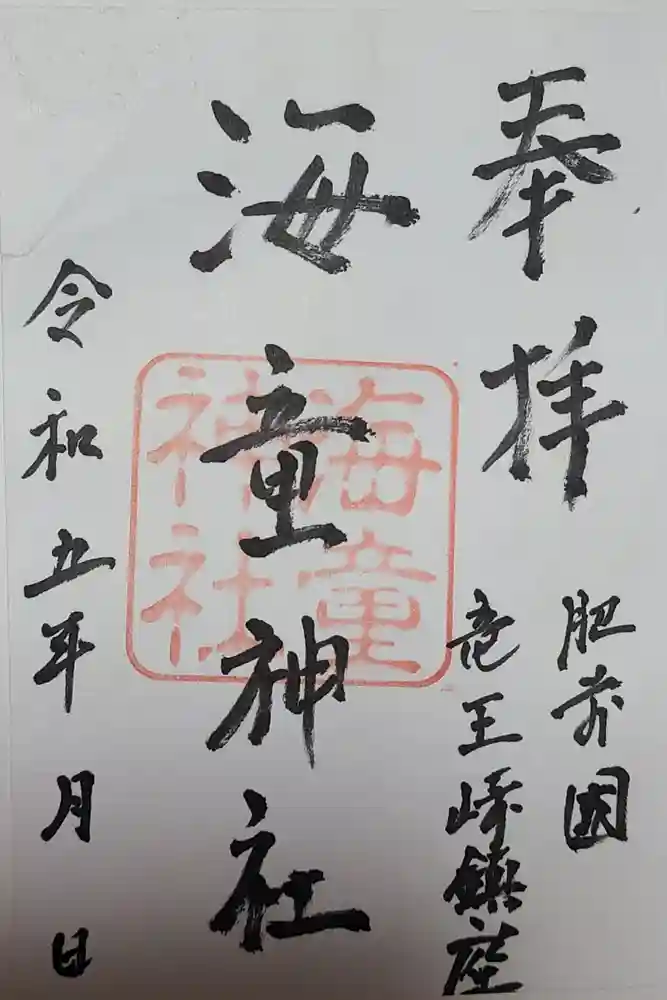 奉拝
肥前国
竜王崎鎮座
海童神社
海童
神社
令和五年 月 日